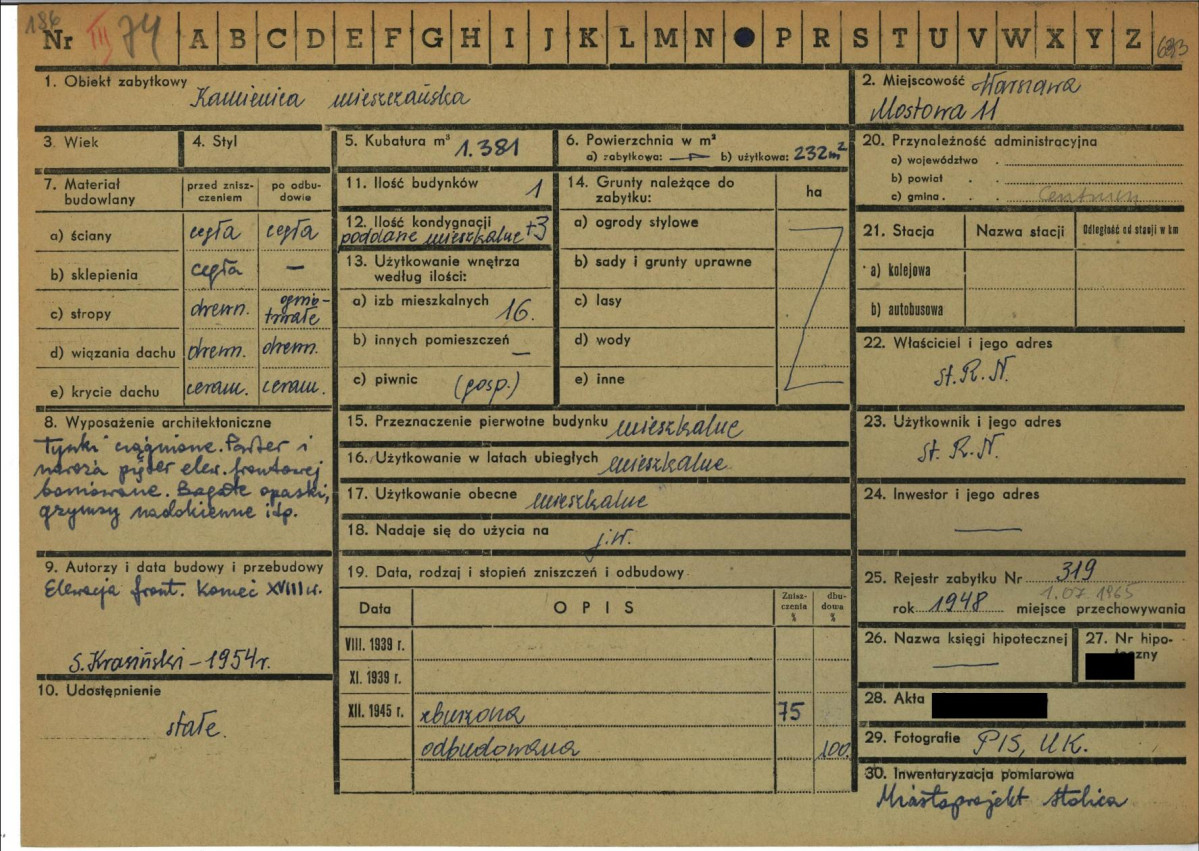 186
Nr III 74 A B C D E F G H I J K L M N P R S T U V W X Y Z 693
1. Obiekt zabytkowy
Kamienica mieszczańska
2. Miejscowość Warszawa
Mostowa 11
3. Wiek
4. Styl
5. Kubatura m³ 1.381
6. Powierzchnia w m²
a) zabytkowa: — b) użytkowa: 232m²
7. Materiał budowlany
przed zniszczeniem
po odbudowie
a) ściany cegła cegła
b) sklepienia cegła —
c) stropy drewn. ognio-
trwałe
d) wiązania dachu drewn. drewn.
e) krycie dachu ceram. ceram.
8. Wyposażenie architektoniczne
Tynki ciągnione. Parter i
naroża pięter elew. frontowej
boniowane. Bogate opaski,
gzymsy nadokienne itp.
9. Autorzy i data budowy i przebudowy
Elewacja front. koniec XVIII w.
S. Krasiński – 1954 r.
10. Udostępnienie
stałe.
11. Ilość budynków 1
12. Ilość kondygnacji
poddane mieszkalne +3
13. Użytkowanie wnętrza
według ilości:
a) izb mieszkalnych 16.
b) innych pomieszczeń —
c) piwnic (gosp.)
14. Grunty należące do
zabytku:
ha
a) ogrody stylowe
b) sady i grunty uprawne
c) lasy
d) wody
e) inne
15. Przeznaczenie pierwotne budynku mieszkalne
16. Użytkowanie w latach ubiegłych mieszkalne
17. Użytkowanie obecne mieszkalne
18. Nadaje się do użycia na j.w.
19. Data, rodzaj i stopień zniszczeń i odbudowy
Data OPIS Znisz-
czenia
% dbu-
dowa
%
VIII. 1939 r.
XI. 1939 r.
XII. 1945 r. zburzona 75
odbudowana 100.
20. Przynależność administracyjna
a) województwo
b) powiat
c) gmina Centrum
21. Stacja Nazwa stacji Odległość od stacji w km
a) kolejowa
b) autobusowa
22. Właściciel i jego adres
St. R. N.
23. Użytkownik i jego adres
St. R. N.
24. Inwestor i jego adres
—
25. Rejestr zabytku Nr 319
1.07 1965
rok 1948 miejsce przechowywania
26. Nazwa księgi hipotecznej
—
27. Nr hipo-
teczny
28. Akta
29. Fotografie PIS, UK.
30. Inwentaryzacja pomiarowa
Miastoprojekt Stolica